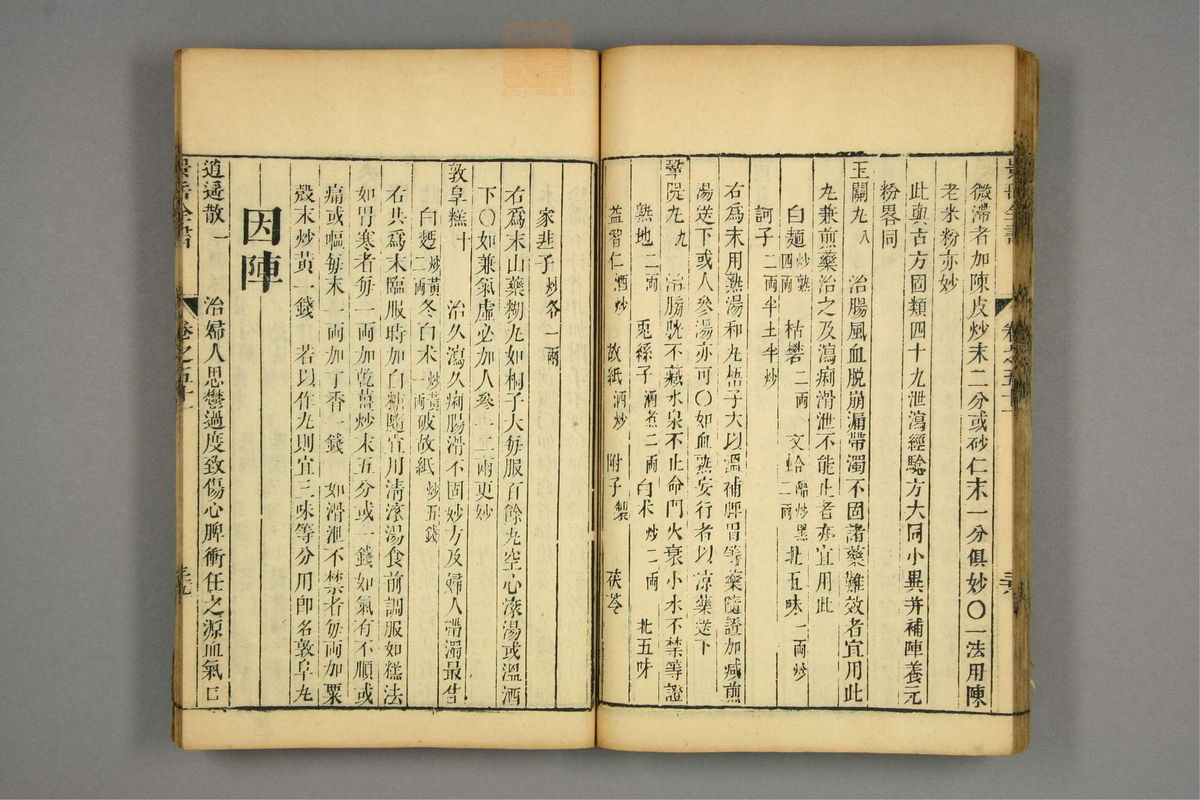 微滯者加陳皮炒末二分或砂仁末一分俱妙〇一法用陳
老米粉亦妙
此與古方固類四十九泄瀉經驗方大同小異并補陣養元
粉畧同
玉關丸 八 治腸風血脫崩漏帶濁不固諸藥難效者宜用此
丸兼煎藥治之及瀉痢滑泄不能止者亦宜用此
白麵 炒熟四兩 枯礬 二兩 文蛤 醋炒黑二兩 北五味 二兩炒
訶子 二兩半生半炒
右爲末用熟湯和丸梧子大以溫補脾胃等藥隨證加減煎
湯送下或人參湯亦可〇如血熱妄行者以凉藥送下
鞏隄丸 九 治膀胱不藏水泉不止命門火衰小水不禁等證
熟地 二兩 兎絲子 酒煮二兩 白朮 炒二兩 北五味
益智仁 酒炒 故紙 酒炒 附子 製 茯苓
家韭子 炒各一兩
右爲末山藥糊丸如桐子大每服百餘丸空心滚湯或溫酒
下〇如兼氣虛必加人參一二兩更妙
敦阜糕 十 治久瀉久痢腸滑不固妙方及婦人帶濁最佳
白麵 炒黃二兩 冬白朮 炒黃一兩 破故紙 炒五錢
右共爲末臨服時加白糖隨宜用清滚湯食前調服如糕法
如胃寒者每一兩加乾薑炒末五分或一錢如氣有不順或
痛或嘔每末一兩加丁香一錢 如滑泄不禁者每兩加粟
殼末炒黃一錢 若以作丸則宜三味等分用卽名敦阜丸
因陣
逍遥散 一 治婦人思鬱過度致傷心脾衝任之源血氣日
景岳全書 卷之五十一